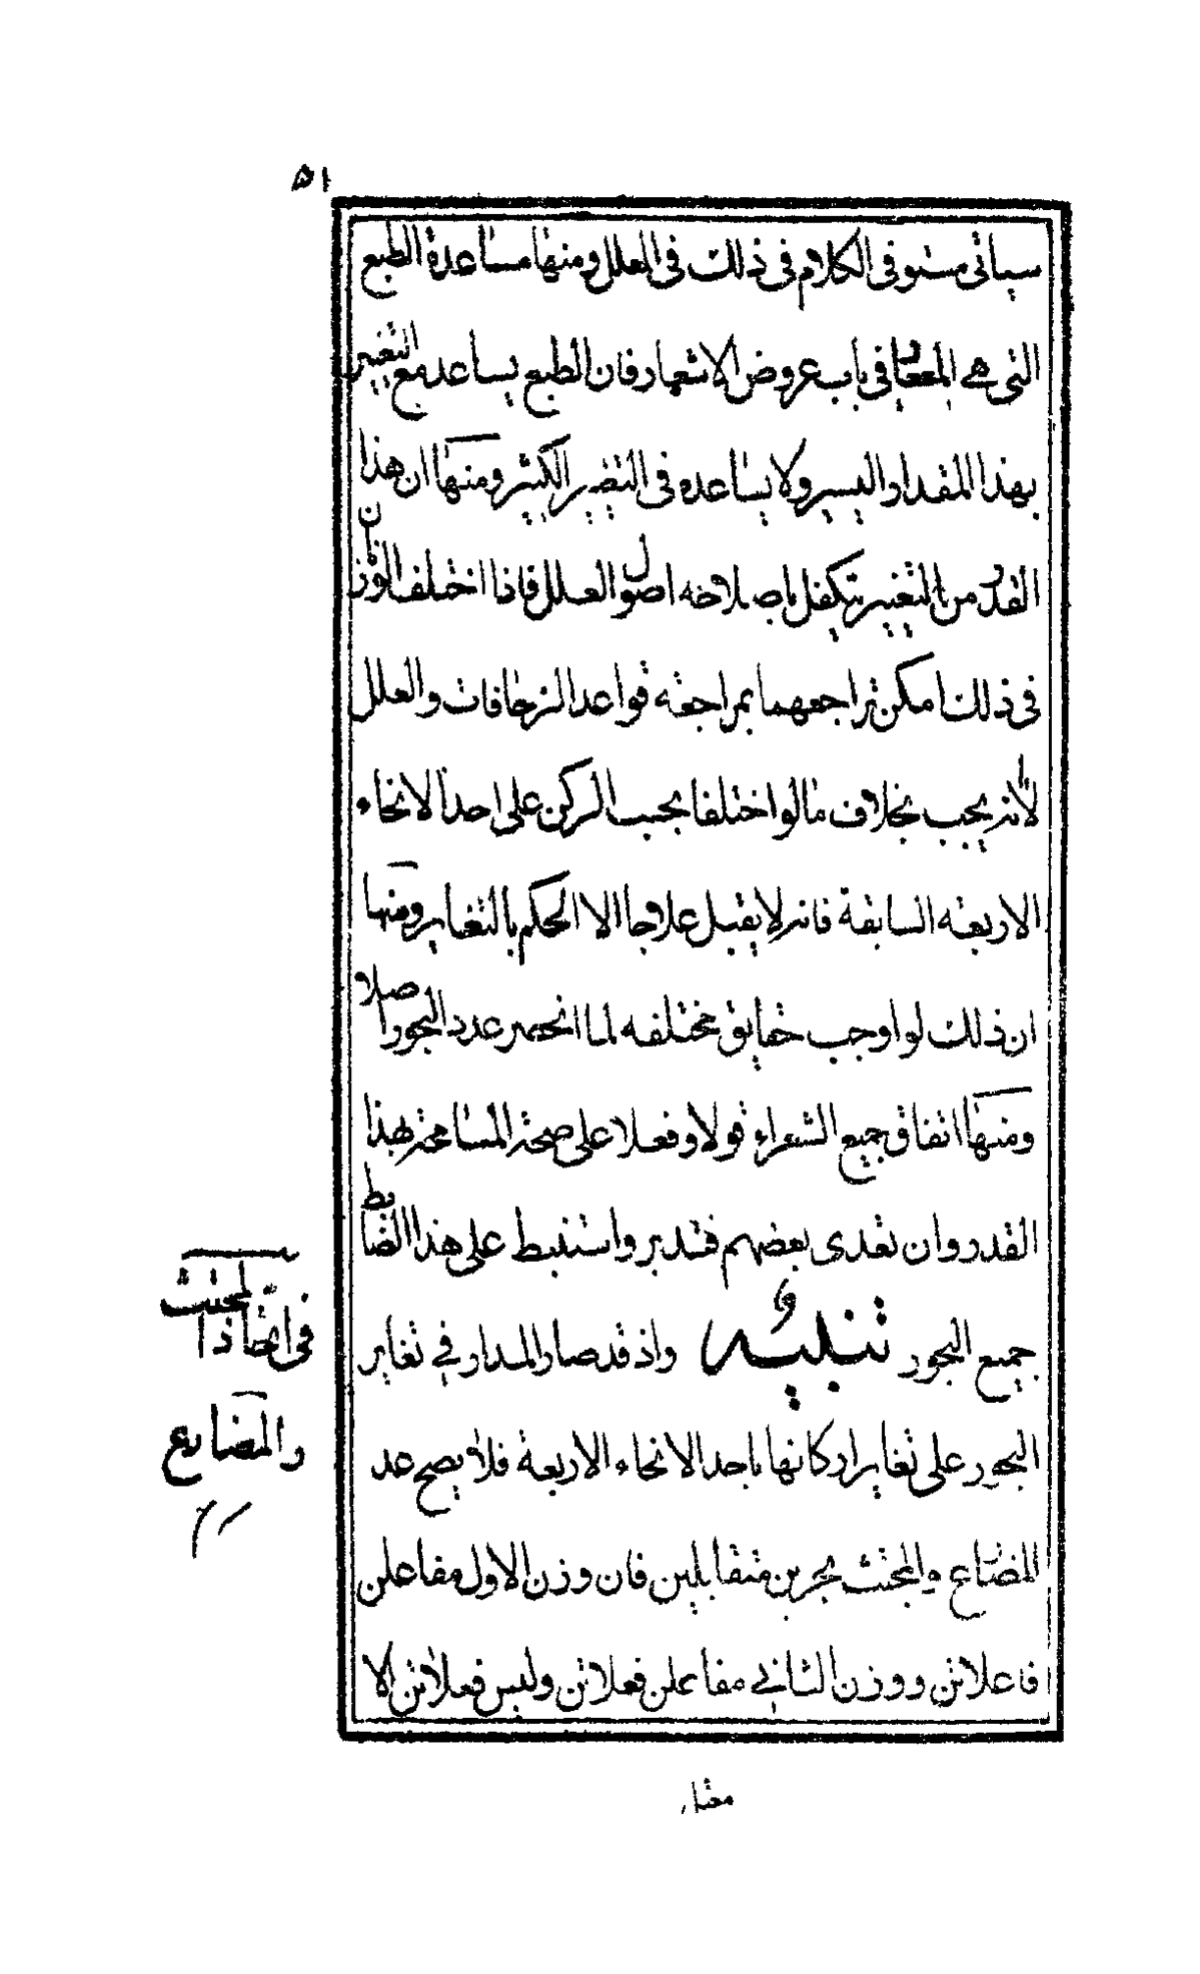 ٥١
سياتى مستوفى الكلام فى ذلك فى العلل ومنها مساعدة الطبع
التى هى المعيار فى باب عروض الاشعار فان الطبع يساعد مع التغيير
بهذا المقدار اليسير ولا يساعده فى التغيير الكثير ومنها ان هذا
القدر من التغيير يتكفل باصلاحه اصول العلل فاذا اختلف الوزنان
فى ذلك امكن تراجعهما بمراجعة قواعد الزحافات والعلل
لانه يجب بخلاف ما لو اختلفا بحسب الركن على احد الانحاء
الاربعه السابقة فانه لا يقبل علاجا الا الحكم بالتغاير ومنها
ان ذلك لو اوجب حقايق مختلفه لما انحصر عدد البحور اصلا
ومنها اتفاق جميع الشعراء قولا وفعلا على صحة المسامحة بهذا
القدر وان تعدى بعضهم فتدبر واستنبط على هذا الضابط
جميع البحور تنبيه واذ قد صار المدار فى تغاير
البحور على تغاير اركانها باحد الانحاء الاربعة فلا يصح عد
المضارع والمجتث بحرين متقابلين فان وزن الاول مفاعلن
فاعلاتن ووزن الثانى مفاعلن فعلاتن وليس فعلاتن الا
فى اتحاد المجتث
والمضارع